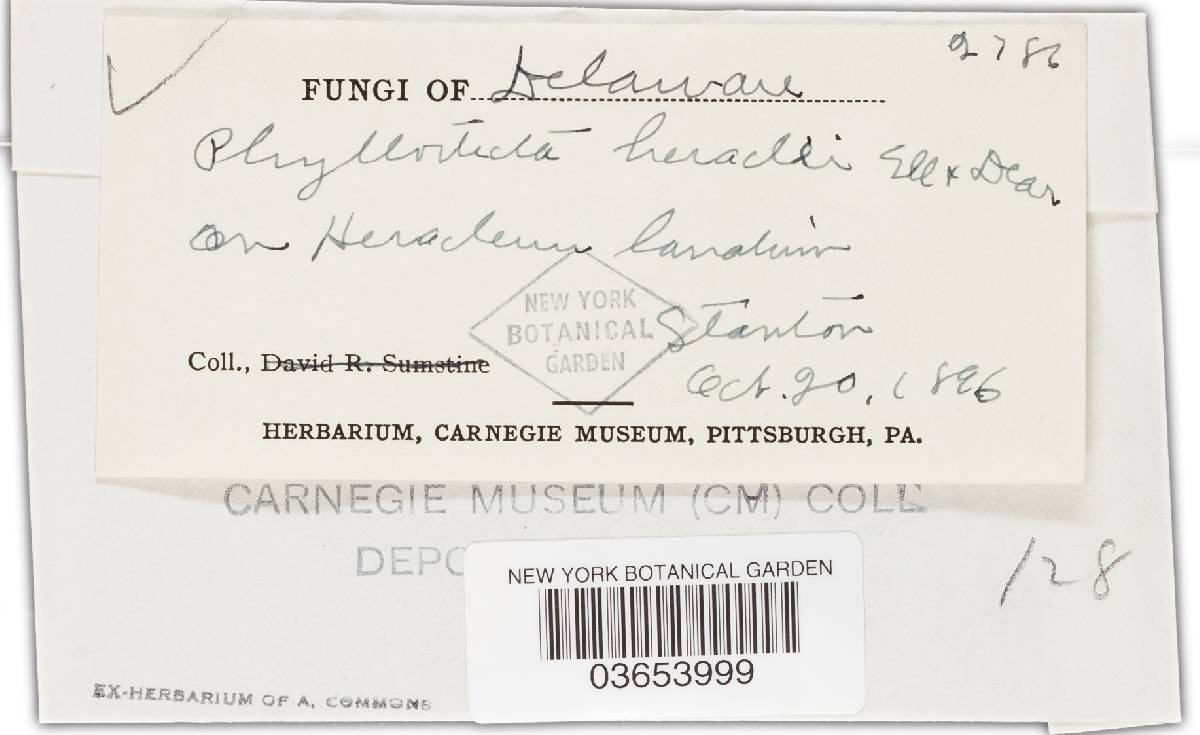 2786
FUNGI OF Delaware
Phyllosticta heraclei Ell & Dear
on Heracleum lanatum
NEW YORK
BOTANICAL
GARDEN
Stanton
Coll., David R. Sumstine
Oct. 20, 1896
HERBARIUM, CARNEGIE MUSEUM, PITTSBURGH, PA.
CARNEGIE MUSEUM (CM) COLL
DEPO
128
NEW YORK BOTANICAL GARDEN
03653999
EX-HERBARIUM OF A. COMMONS